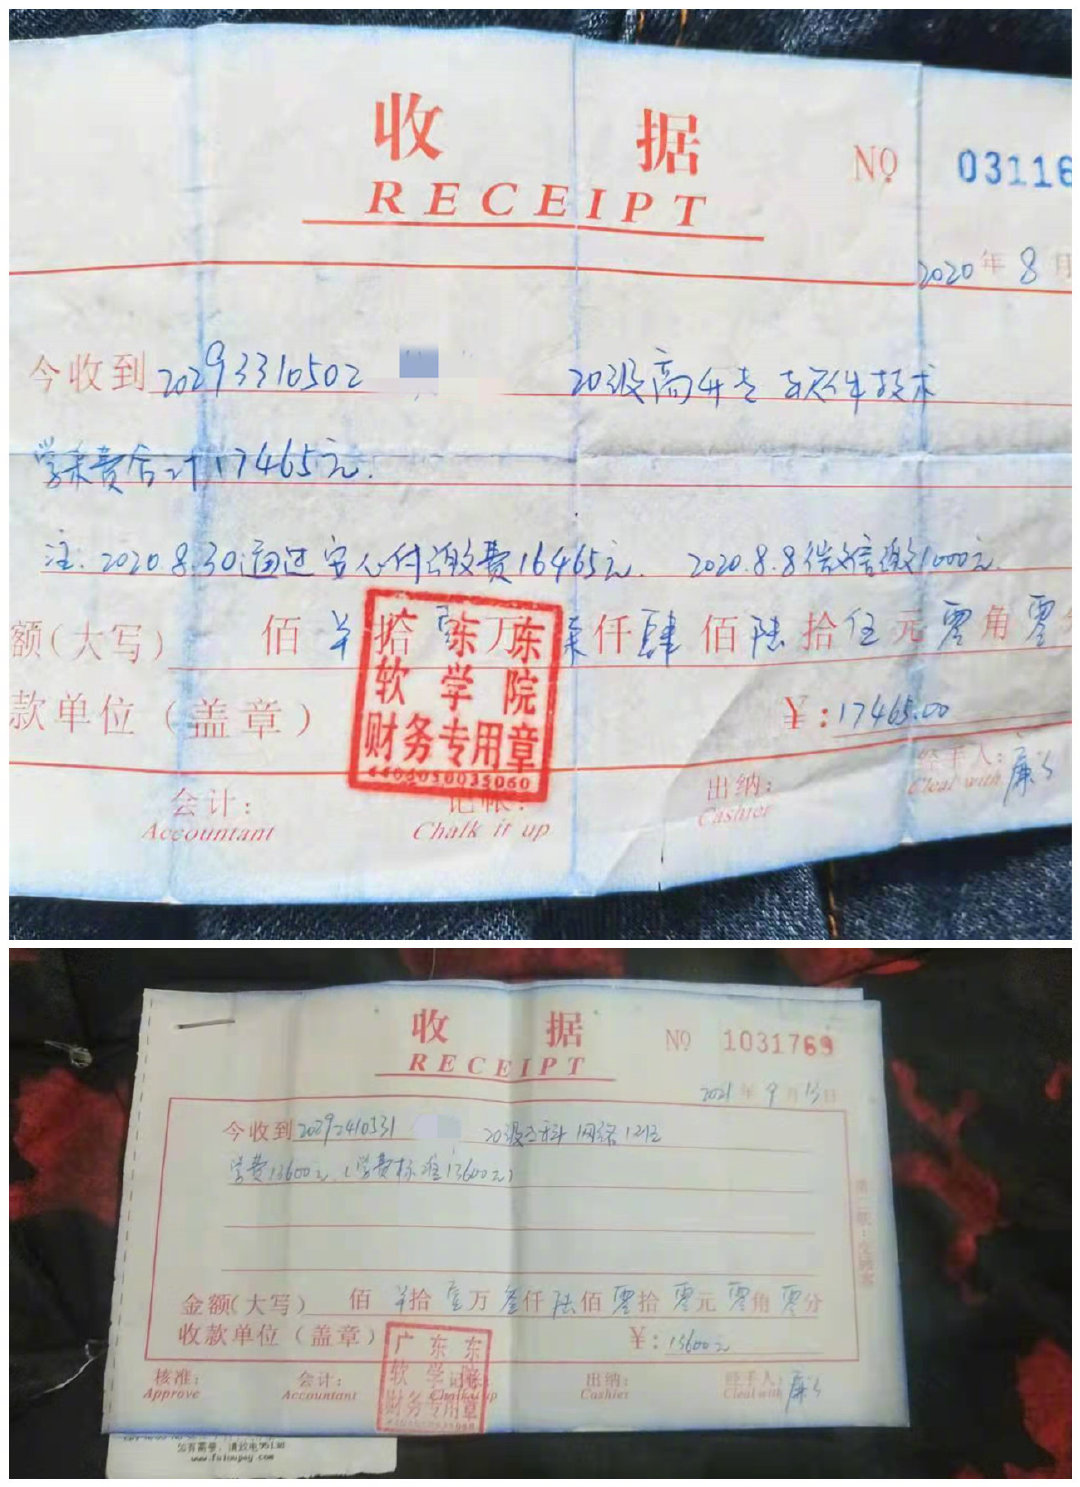 收 据
RECEIPT
NO 03116
2020年8月
今收到 20293310502 20级高升专 软件技术
学杂费合计17465元.
注. 2020.8.30通过安心付缴费16465元. 2020.8.8微信缴1000元.
额(大写) 佰 拾 壹万 柒仟肆佰陆拾伍元零角零
款单位(盖章) ¥:17465.00
广东东
软学院
财务专用章
4402050035060
会计: 记帐: 出纳: 经手人:
Accountant Chalk it up Cashier Cleal with
收 据
RECEIPT
NO 1031769
2021年9月13日
今收到 20292410331 20级专科 网络121
学费13600元.(学费标准13600元)
第二联:交顾客
金额(大写) 佰 拾壹万叁仟陆佰零拾零元零角零分
收款单位(盖章) ¥:13600元
广东东
软学院
财务专用章
核准: 会计: 记帐: 出纳: 经手人:
Approve Accountant Chalk it up Cashier Cleal with
如有需要,请致电95138
www.fuioupay.com